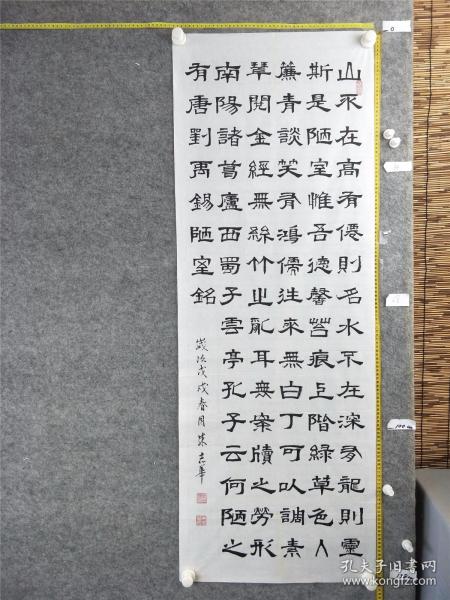 山不在高有僊則名水不在深有龍則靈
斯是陋室惟吾德馨苔痕上階綠草色入
簾青談笑有鴻儒往來無白丁可以調素
琴閱金經無絲竹之亂耳無案牘之勞形
南陽諸葛廬西蜀子雲亭孔子云何陋之
有唐劉禹錫陋室銘
歲次戊戌春月朱志華
0
100cm
孔夫子旧书网